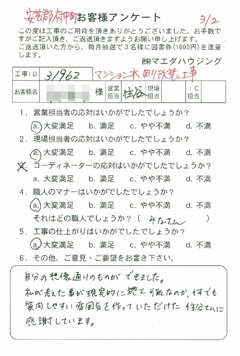 安芸郡府中町 お客様アンケート 3/2
この度は工事のご用命を頂きありがとうございました。お手数で
すがご記入頂き、ご返送頂きますようお願い申し上げます。
ご返送頂いた方から、毎月抽選で3名様に図書券(1000円)を進呈
します。
㈱マエダハウジング
工事ID 31962 マンション水回り改装工事
お客様名 様 営業担当 住谷 現場担当 IC担当
1. 営業担当者の応対はいかがでしたでしょうか?
a.大変満足 b.満足 c.やや不満 d.不満
2. 現場担当者の応対はいかがでしたでしょうか?
a.大変満足 b.満足 c.やや不満 d.不満
3. コーディネーターの応対はいかがでしたでしょうか?
a.大変満足 b.満足 c.やや不満 d.不満
4. 職人のマナーはいかがでしたでしょうか?
a.大変満足 b.満足 c.やや不満 d.不満
それはどの職人でしょうか? (みなさん)
5. 工事の仕上がりはいかがでしたでしょうか?
a.大変満足 b.満足 c.やや不満 d.不満
6. その他、ご意見・ご要望をお書き下さい。
自分の想像通りのものができました。
私が考えた事が現実的に施工可能なのか、何でも
質問しやすい雰囲気を作っていただけた住谷さんに
感謝しています。